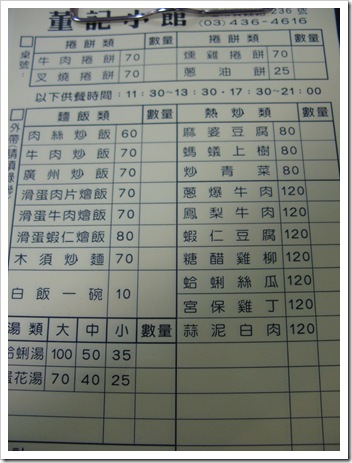 董記小館
236號
(03)436-4616
桌號:
捲餅類 數量 捲餅類 數量
牛肉捲餅 70 燻雞捲餅 70
叉燒捲餅 70 蔥油餅 25
以下供餐時間:11:30~13:30·17:30~21:00
麵飯類 數量 熱炒類 數量
肉絲炒飯 60 麻婆豆腐 80
牛肉炒飯 70 螞蟻上樹 80
廣州炒飯 70 炒青菜 80
滑蛋肉片燴飯 70 蔥爆牛肉 120
滑蛋牛肉燴飯 70 鳳梨牛肉 120
滑蛋蝦仁燴飯 80 蝦仁豆腐 120
木須炒麵 70 糖醋雞柳 120
白飯一碗 10 蛤蜊絲瓜 120
湯類 大 中 小 數量 宮保雞丁 120
蛤蜊湯 100 50 35 蒜泥白肉 120
蛋花湯 70 40 25